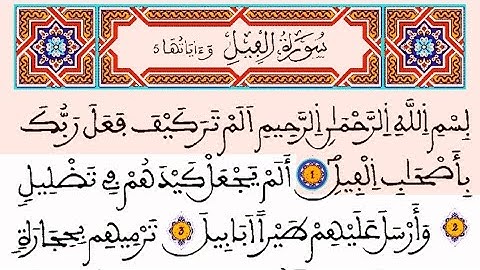 سُورَةُ الْفِيلِ وَءَايَاتُهَا 5
بِسْمِ اِللَّهِ اِلرَّحْمَٰنِ اِلرَّحِيمِ أَلَمْ تَرَ كَيْفَ فَعَلَ رَبُّكَ
بِأَصْحَٰبِ اِلْفِيلِ 1 أَلَمْ يَجْعَلْ كَيْدَهُمْ فِي تَضْلِيلٍ
2 وَأَرْسَلَ عَلَيْهِمْ طَيْراً اَبَابِيلَ 3 تَرْمِيهِم بِحِجَارَةٍ